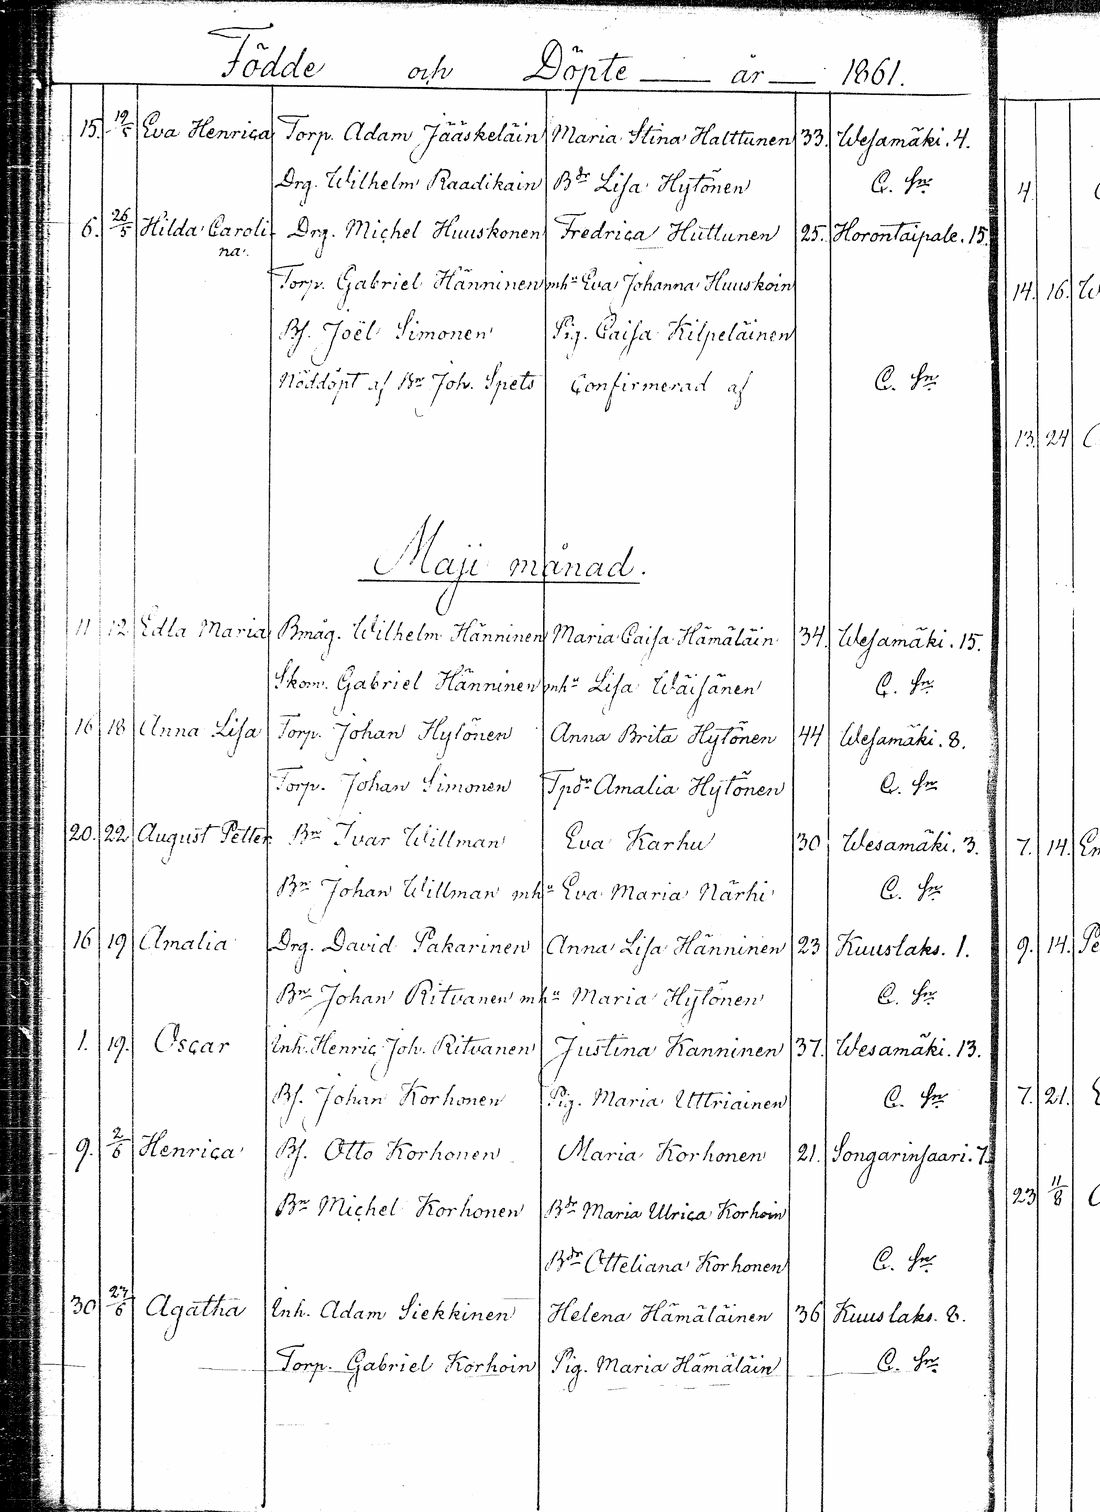 Födde och Döpte — år — 1861.
15. 19/5 Eva Henrica Torp. Adam Jääskeläin Maria Stina Halttunen 33. Wesamäki. 4.
Drg. Wilhelm Raadikain Bdr Lisa Hytönen C. fn
6. 26/5 Hilda Caroli- Drg. Michel Huuskonen Fredrica Huttunen 25. Horontaipale. 15.
na.
Torp. Gabriel Hänninen mhu Eva Johanna Huuskoin
Bs. Joël Simonen Pig. Caisa Kilpeläinen
Nöddöpt af Bn Joh. Spets Confirmerad af C. fn
Maji månad.
11 12 Edla Maria Bmåg. Wilhelm Hänninen Maria Caisa Hämäläin 34. Wesamäki. 15.
Skom. Gabriel Hänninen mhu Lisa Wäisänen C. fn
16 18 Anna Lisa Torp. Johan Hytönen Anna Brita Hytönen 44 Wesamäki. 8.
Torp. Johan Simonen Tpdr Amalia Hytönen C. fn
20. 22 August Petter Bn Ivar Willman Eva Karhu 30 Wesamäki. 3.
Bn Johan Willman mhu Eva Maria Närhi C. fn
16 19 Amalia Drg. David Pakarinen Anna Lisa Hänninen 23 Kuuslaks. 1.
Bn Johan Ritvanen mhu Maria Hytönen C. fn
1. 19. Oscar Inh. Henric Joh. Ritvanen Justina Kanninen 37. Wesamäki. 13.
Bs. Johan Korhonen Pig. Maria Uttriainen C. fn
9. 2/6 Henrica Bs. Otto Korhonen Maria Korhonen 21. Songarinsaari. 7.
Bn Michel Korhonen Bdr Maria Ulrica Korhoin
Bdr Otteliana Korhonen C. fn
30 27/6 Agatha Inh. Adam Siekkinen Helena Hämäläinen 36 Kuuslaks. 8.
Torp. Gabriel Korhoin Pig. Maria Hämäläin C. fn
4.
14. 16.
13. 24
7. 14.
9. 14.
7. 21.
23 11/8